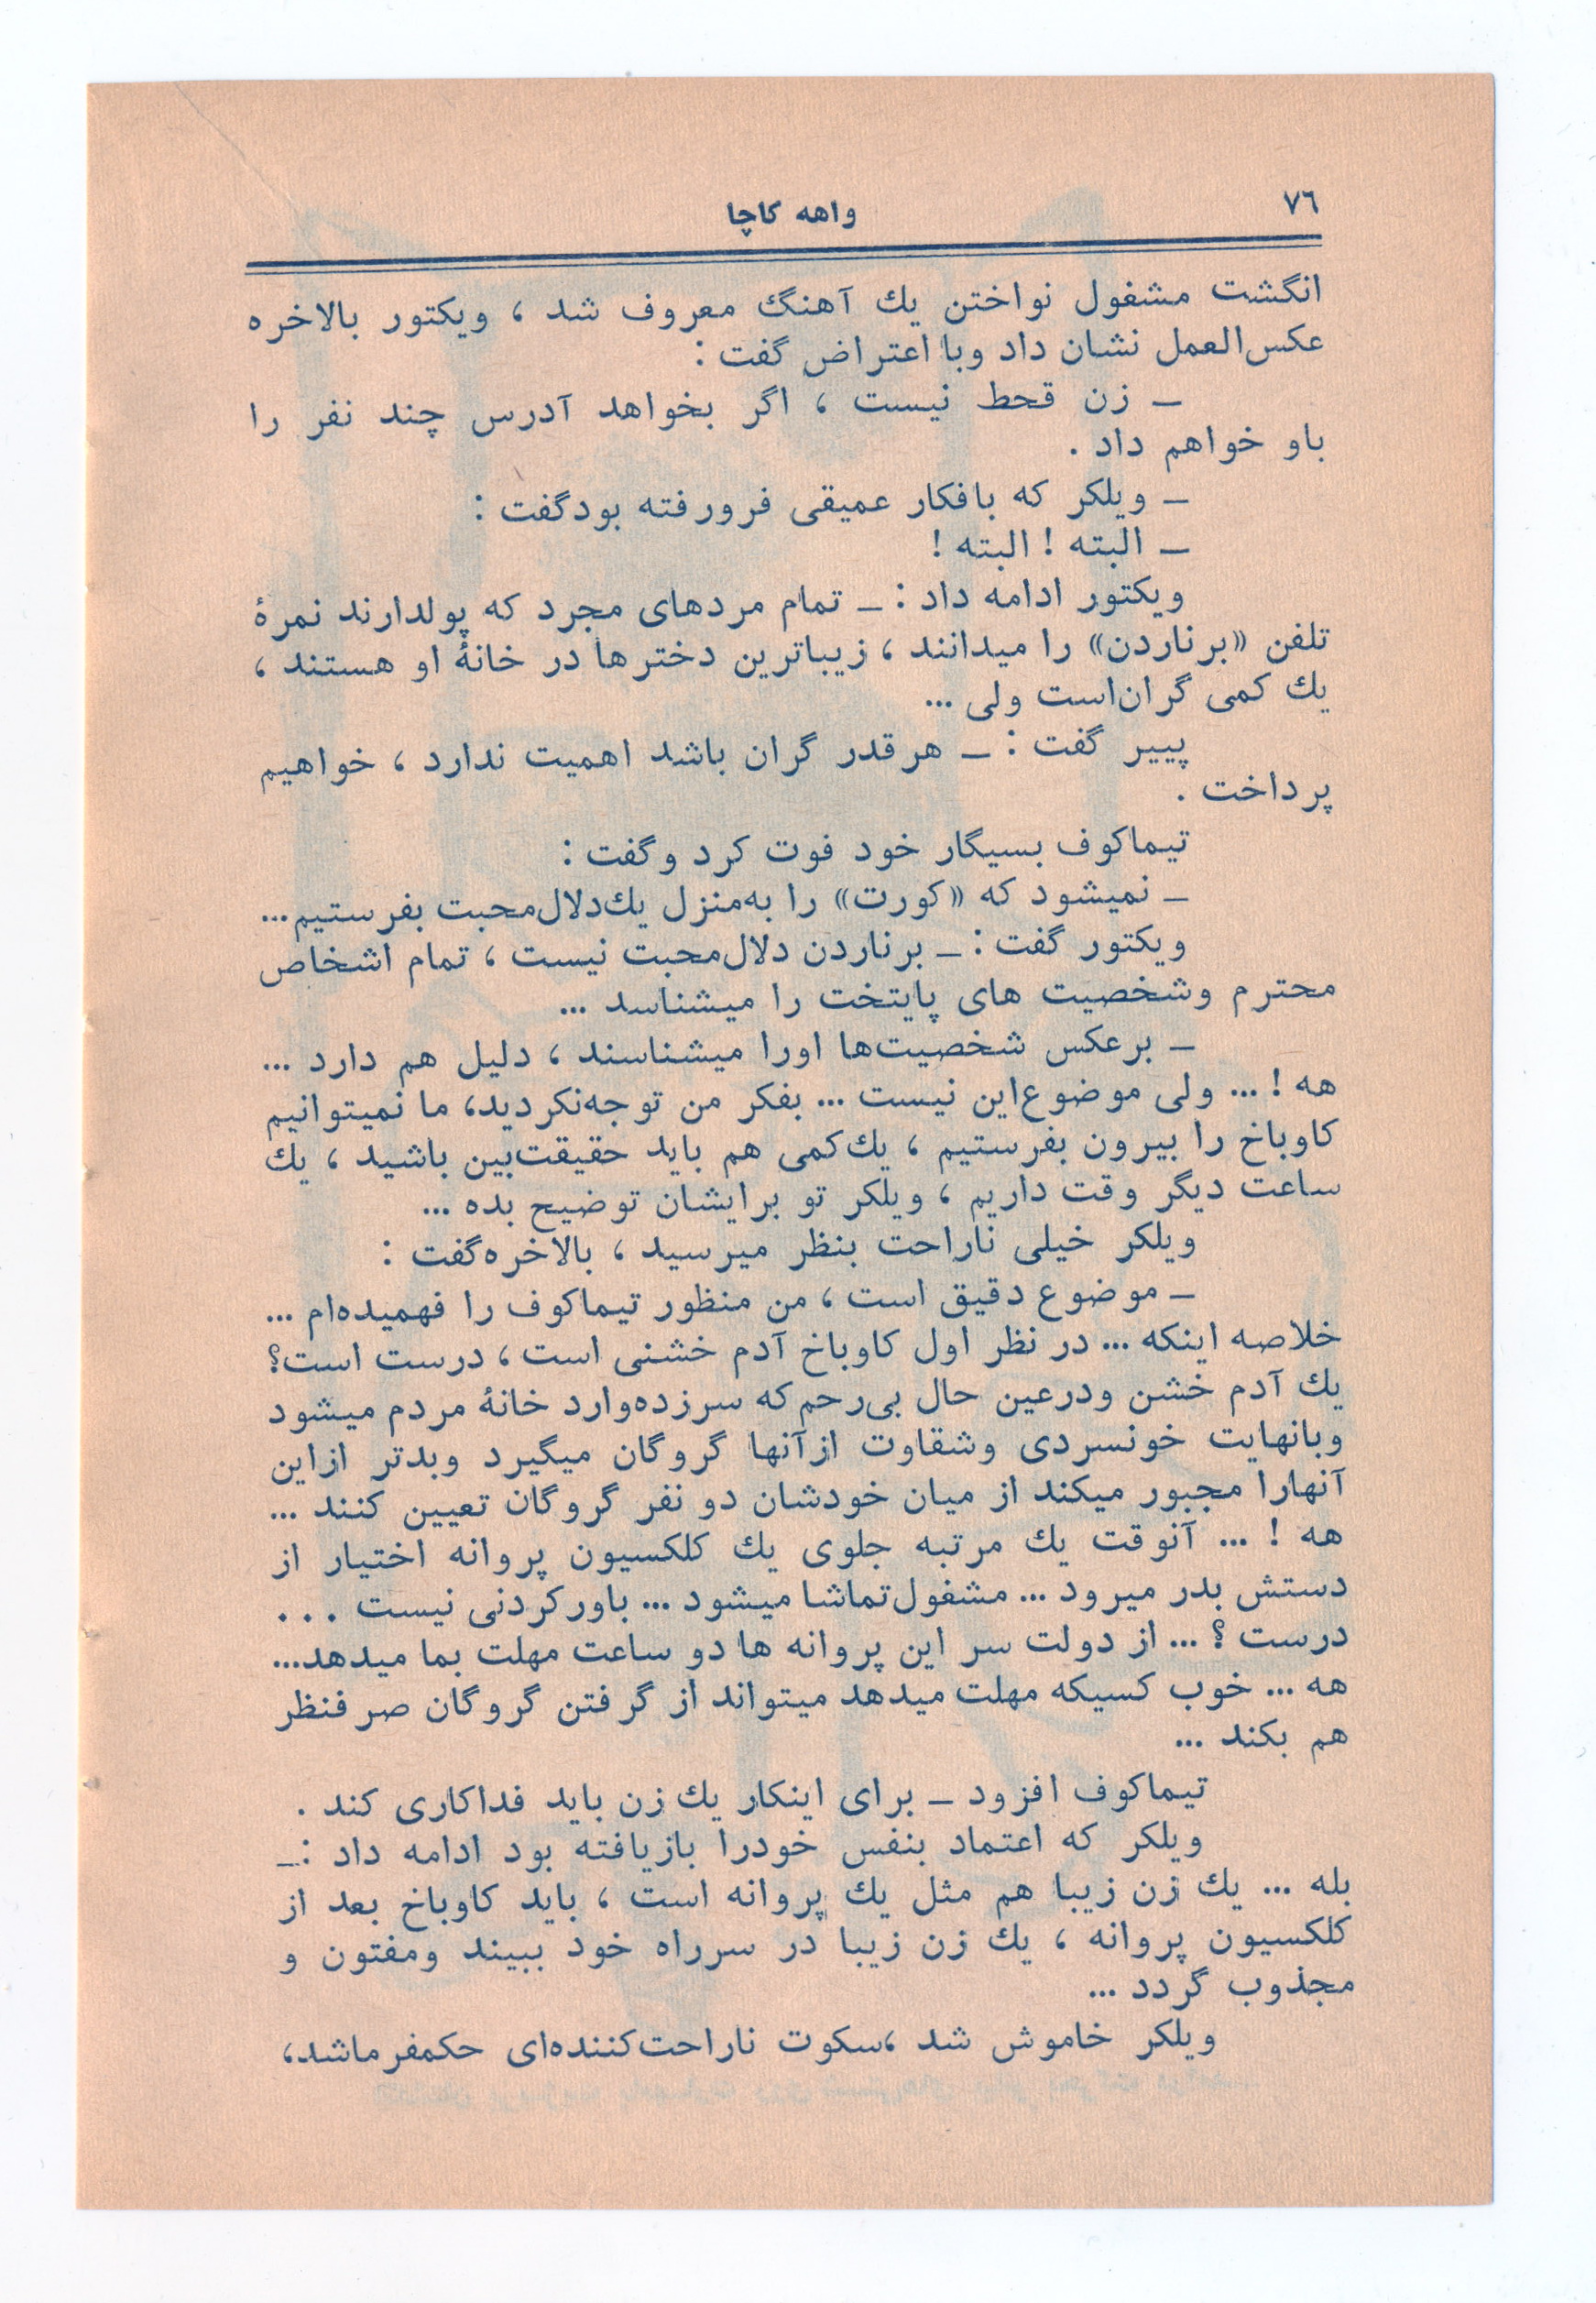 ٧٦
واهه كاچا
انگشت مشغول نواختن يك آهنگ معروف شد ، ويكتور بالاخره
عكس‌العمل نشان داد وبا اعتراض گفت :
ـ زن قحط نيست ، اگر بخواهد آدرس چند نفر را
باو خواهم داد .
ـ ويلكر كه بافكار عميقى فرورفته بودگفت :
ـ البته ! البته !
ويكتور ادامه داد : ـ تمام مردهاى مجرد كه پولدارند نمرۀ
تلفن «برناردن» را ميدانند ، زيباترين دخترها در خانۀ او هستند ،
يك كمى گران‌است ولى ...
پيير گفت : ـ هرقدر گران باشد اهميت ندارد ، خواهيم
پرداخت .
تيماكوف بسيگار خود فوت كرد وگفت :
ـ نميشود كه «كورت» را به‌منزل يك‌دلال‌محبت بفرستيم...
ويكتور گفت : ـ برناردن دلال‌محبت نيست ، تمام اشخاص
محترم وشخصيت هاى پايتخت را ميشناسد ...
ـ برعكس شخصيت‌ها اورا ميشناسند ، دليل هم دارد ...
هه ! ... ولى موضوع‌اين نيست ... بفكر من توجه‌نكرديد، ما نميتوانيم
كاوباخ را بيرون بفرستيم ، يك‌كمى هم بايد حقيقت‌بين باشيد ، يك
ساعت ديگر وقت داريم ، ويلكر تو برايشان توضيح بده ...
ويلكر خيلى ناراحت بنظر ميرسيد ، بالاخره‌گفت :
ـ موضوع دقيق است ، من منظور تيماكوف را فهميده‌ام ...
خلاصه اينكه ... در نظر اول كاوباخ آدم خشنى است ، درست است؟
يك آدم خشن ودرعين حال بى‌رحم‌كه سرزده‌وارد خانۀ مردم ميشود
وبانهايت خونسردى وشقاوت ازآنها گروگان ميگيرد وبدتر ازاين
آنهارا مجبور ميكند از ميان خودشان دو نفر گروگان تعيين كنند ...
هه ! ... آنوقت يك مرتبه جلوى يك كلكسيون پروانه اختيار از
دستش بدر ميرود ... مشغول‌تماشا ميشود ... باوركردنى نيست . . .
درست ؟ ... از دولت سر اين پروانه ها دو ساعت مهلت بما ميدهد...
هه ... خوب كسيكه مهلت ميدهد ميتواند از گرفتن گروگان صرفنظر
هم بكند ...
تيماكوف افزود ـ براى اينكار يك زن بايد فداكارى كند .
ويلكر كه اعتماد بنفس خودرا بازيافته بود ادامه داد :ـ
بله ... يك زن زيبا هم مثل يك پروانه است ، بايد كاوباخ بعد از
كلكسيون پروانه ، يك زن زيبا در سرراه خود ببيند ومفتون و
مجذوب گردد ...
ويلكر خاموش شد ،سكوت ناراحت‌كننده‌اى حكمفرماشد،